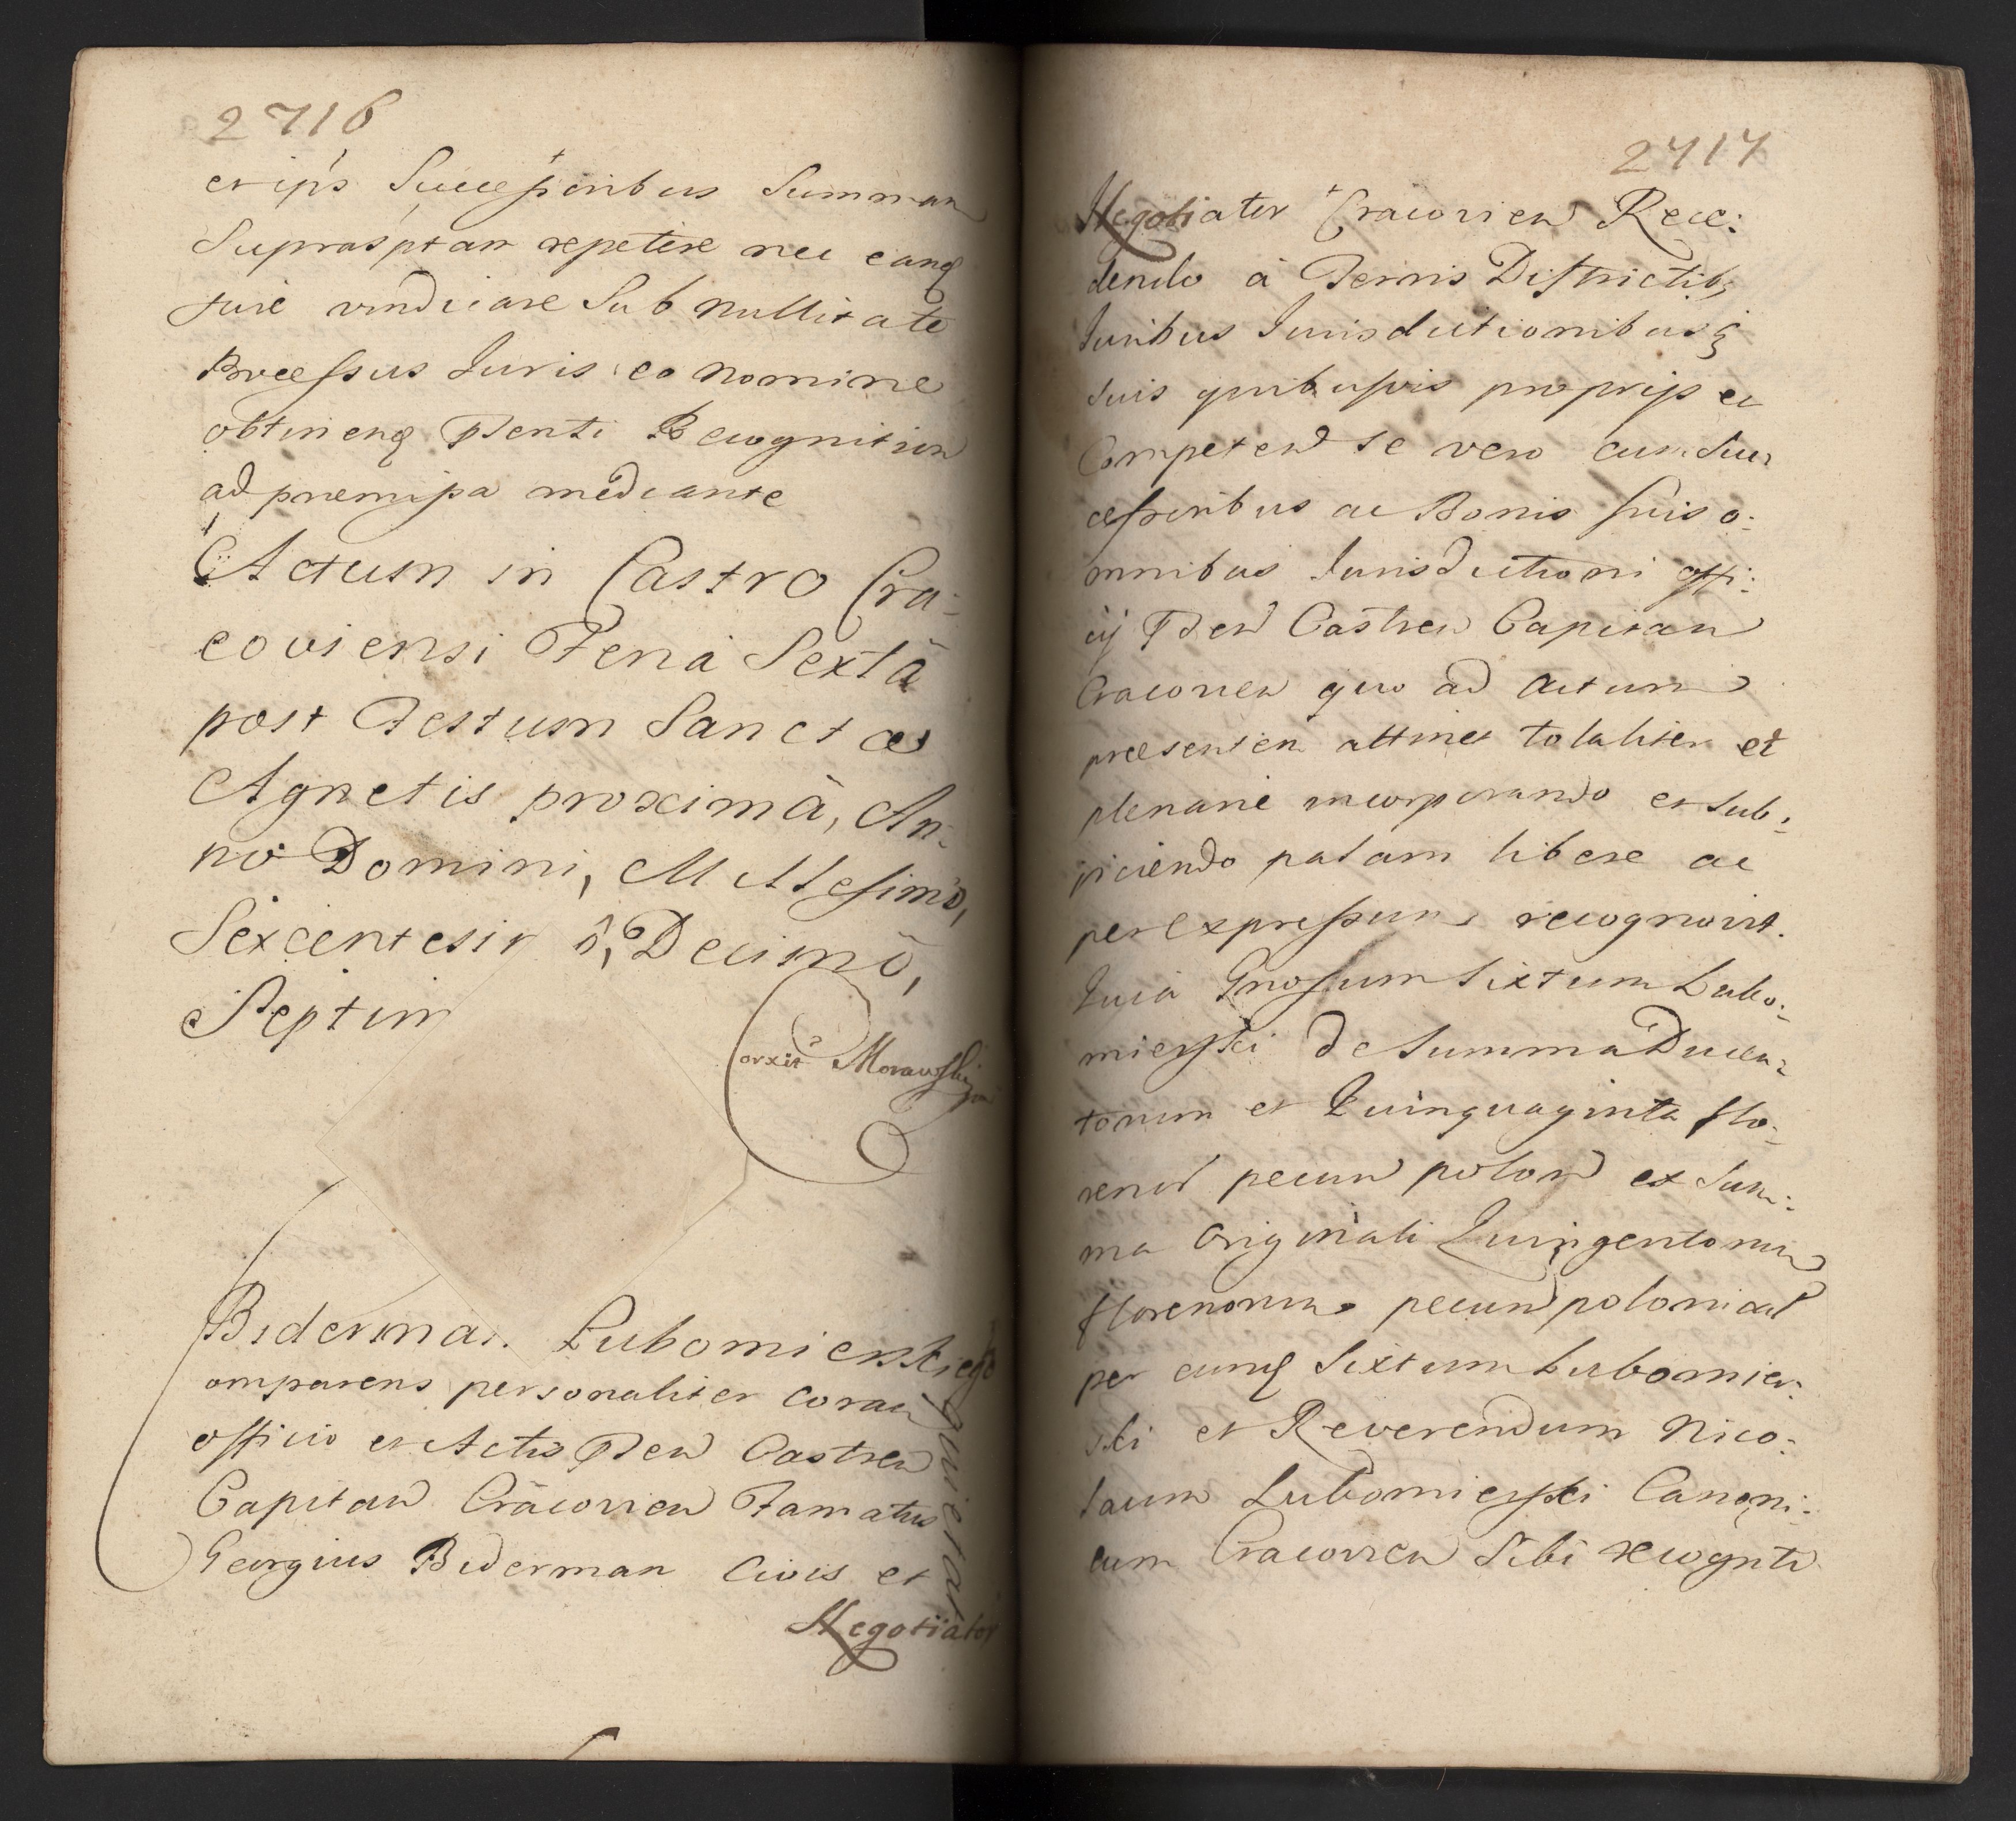 2716
et ips Successoribus Summam
Suprasptam repetere nec eandq
Jure vindicare Sub nullitate
Processus Juris eo nomine
obtinenq Pnti Recognition
ad premissa mediante
Actum in Castro Cra-
coviensi Feria Sextâ
post Festum Sanctæ
Agnetis proximâ, An-
no Domini, Millesimô,
Sexcentesim ô, Decimô,
Septim
orxit Morawski
Biderman Lubomierskiego
quietat
omparens personaliter coram
officio et Actis Pnten Castren
Capitan Cracovien Famatus
Georgius Biderman Civis et
Negotiator
2717
Negotiator Cracovien Rece:
dendo à Terris Districtibq
Juribus Jurisdictionibusq
Suis quibusvis proprijs et
Competen se vero cum Suc
cessoribus ac Bonis suis o:
mnibus Jurisdictioni offi:
cij Pnten Castren Capitan
Cracovien quo ad Actum
præsentem attinet totaliter et
plenarie incorporando et Sub:
jiciendo palam libere ac
per expressum recognovit.
Quia Gnosum Sixtum Lubo:
mierski de Summa Ducen:
torum et Quinquaginta flo:
renor pecun polon ex Sum:
ma Originali Quingentorum
florenorum pecun polonical
per eundq Sixtum Lubomier:
ski et Reverendum Nico:
laum Lubomierski Canoni:
cum Cracovien Sibi recognti